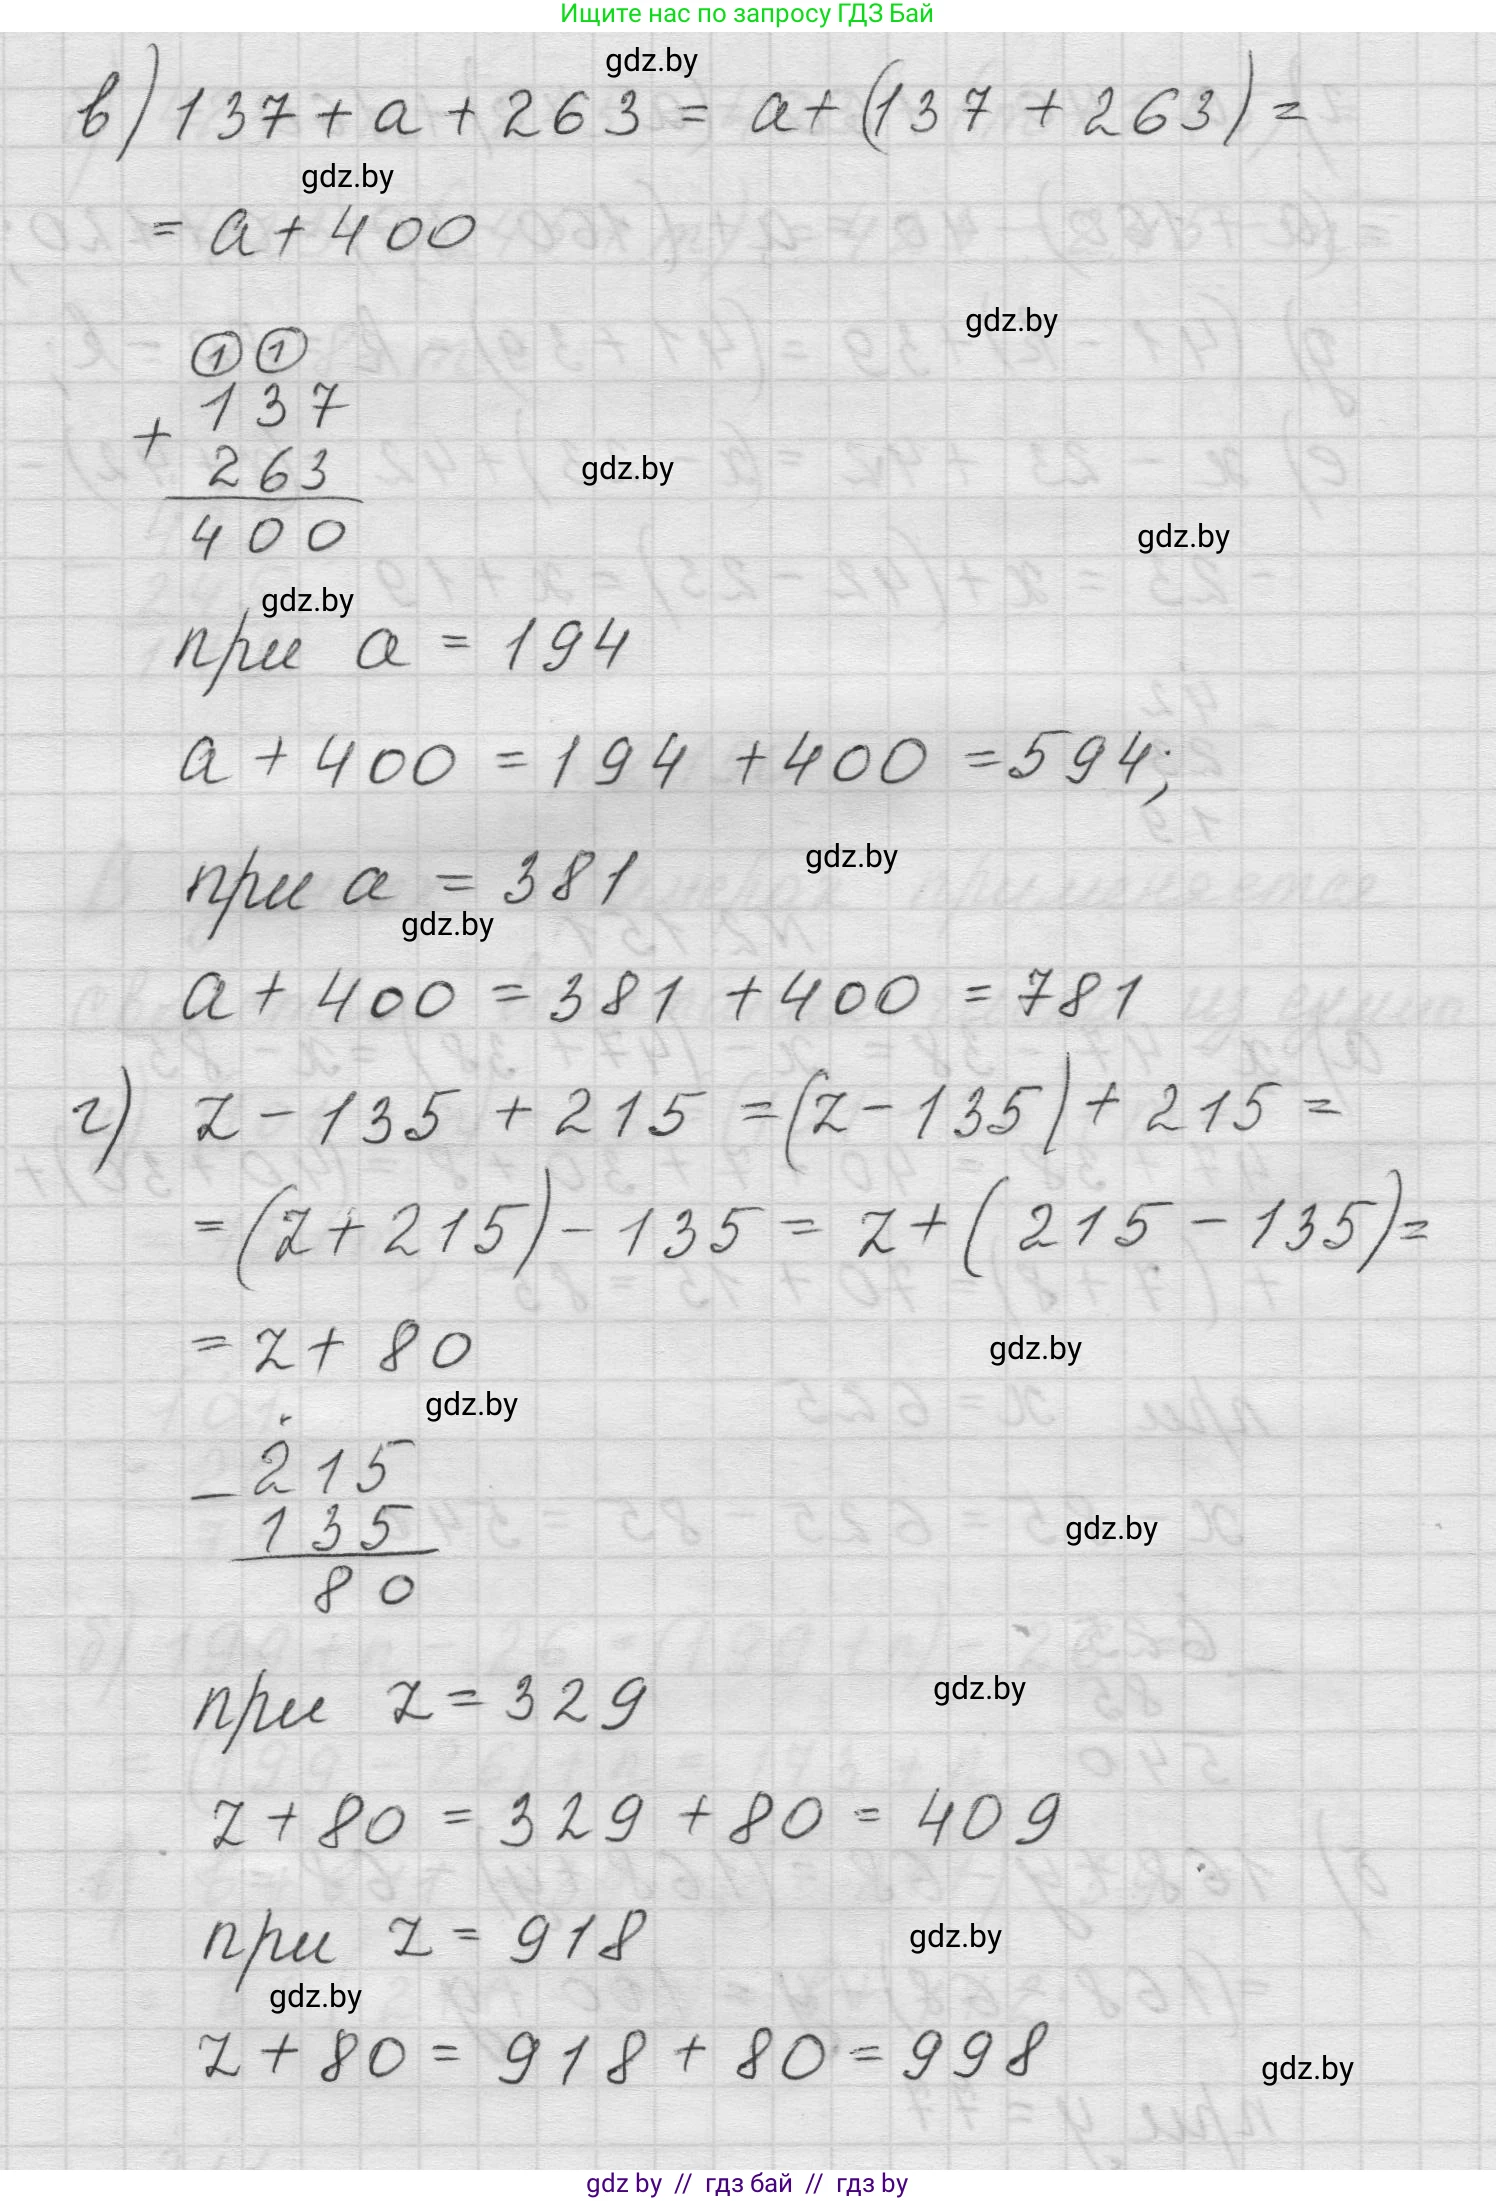 Ищите нас по запросу ГДЗ Бай
gdz.by
в) 137 + a + 263 = a + (137 + 263) =
gdz.by
= a + 400
gdz.by
1 1
137
+
263
gdz.by
400
gdz.by
gdz.by
при a = 194
a + 400 = 194 + 400 = 594;
gdz.by
при a = 381
gdz.by
a + 400 = 381 + 400 = 781
г) z - 135 + 215 = (z - 135) + 215 =
= (z + 215) - 135 = z + (215 - 135) =
= z + 80
gdz.by
gdz.by
- 215
135
gdz.by
80
при z = 329
gdz.by
z + 80 = 329 + 80 = 409
при z = 918
gdz.by
gdz.by
z + 80 = 918 + 80 = 998
gdz.by
gdz by // гдз бай // гдз by